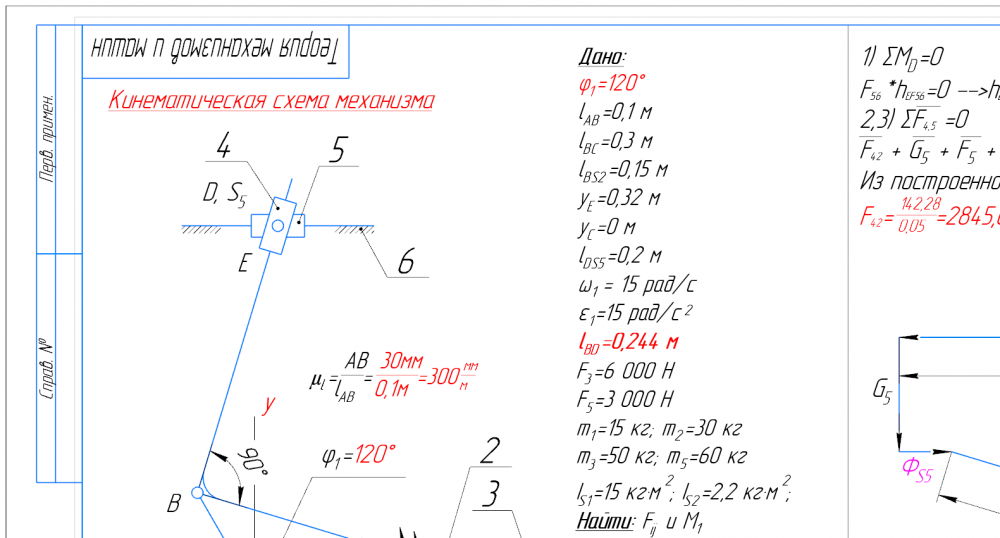 Теория механизмов и машин
Кинематическая схема механизма
Перв. примен.
Справ. №
4
5
D, S5
E
6
μl=AB/lAB=30мм/0,1м=300мм/м
y
90°
φ1=120°
B
2
3
Дано:
φ1=120°
lAB=0,1 м
lBC=0,3 м
lBS2=0,15 м
yE=0,32 м
yC=0 м
lDS5=0,2 м
ω1 = 15 рад/с
ε1=15 рад/с2
lBD=0,244 м
F3=6 000 Н
F5=3 000 Н
m1=15 кг; m2=30 кг
m3=50 кг; m5=60 кг
IS1=15 кг·м2; IS2=2,2 кг·м2;
Найти: Fij и M1
1) ΣMD=0
F56 *hEF56=0 -->h
2,3) ΣF4,5 =0
F42 + G5 + F5 +
Из построенно
F42=142,28/0,05=2845,
G5
ΦS5